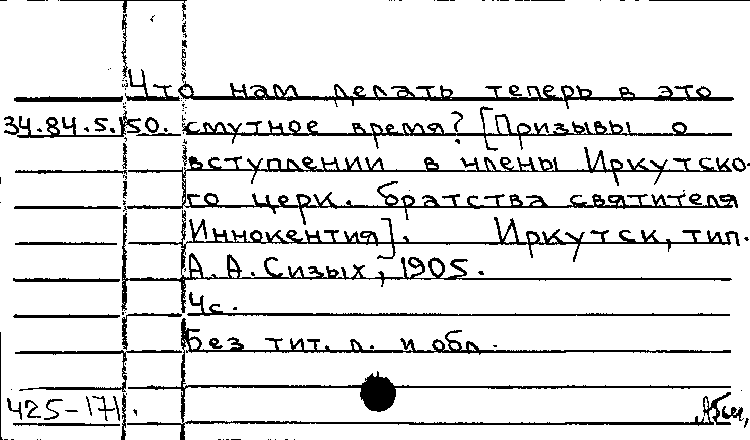 Что нам делать теперь в это
34.84.5.150. смутное время? [Призывы о
вступлении в члены Иркутско-
го церк. братства святителя
Иннокентия]. Иркутск, тип.
А.А.Сизых, 1905.
4с.
Без тит. л. и обл.
425-171.